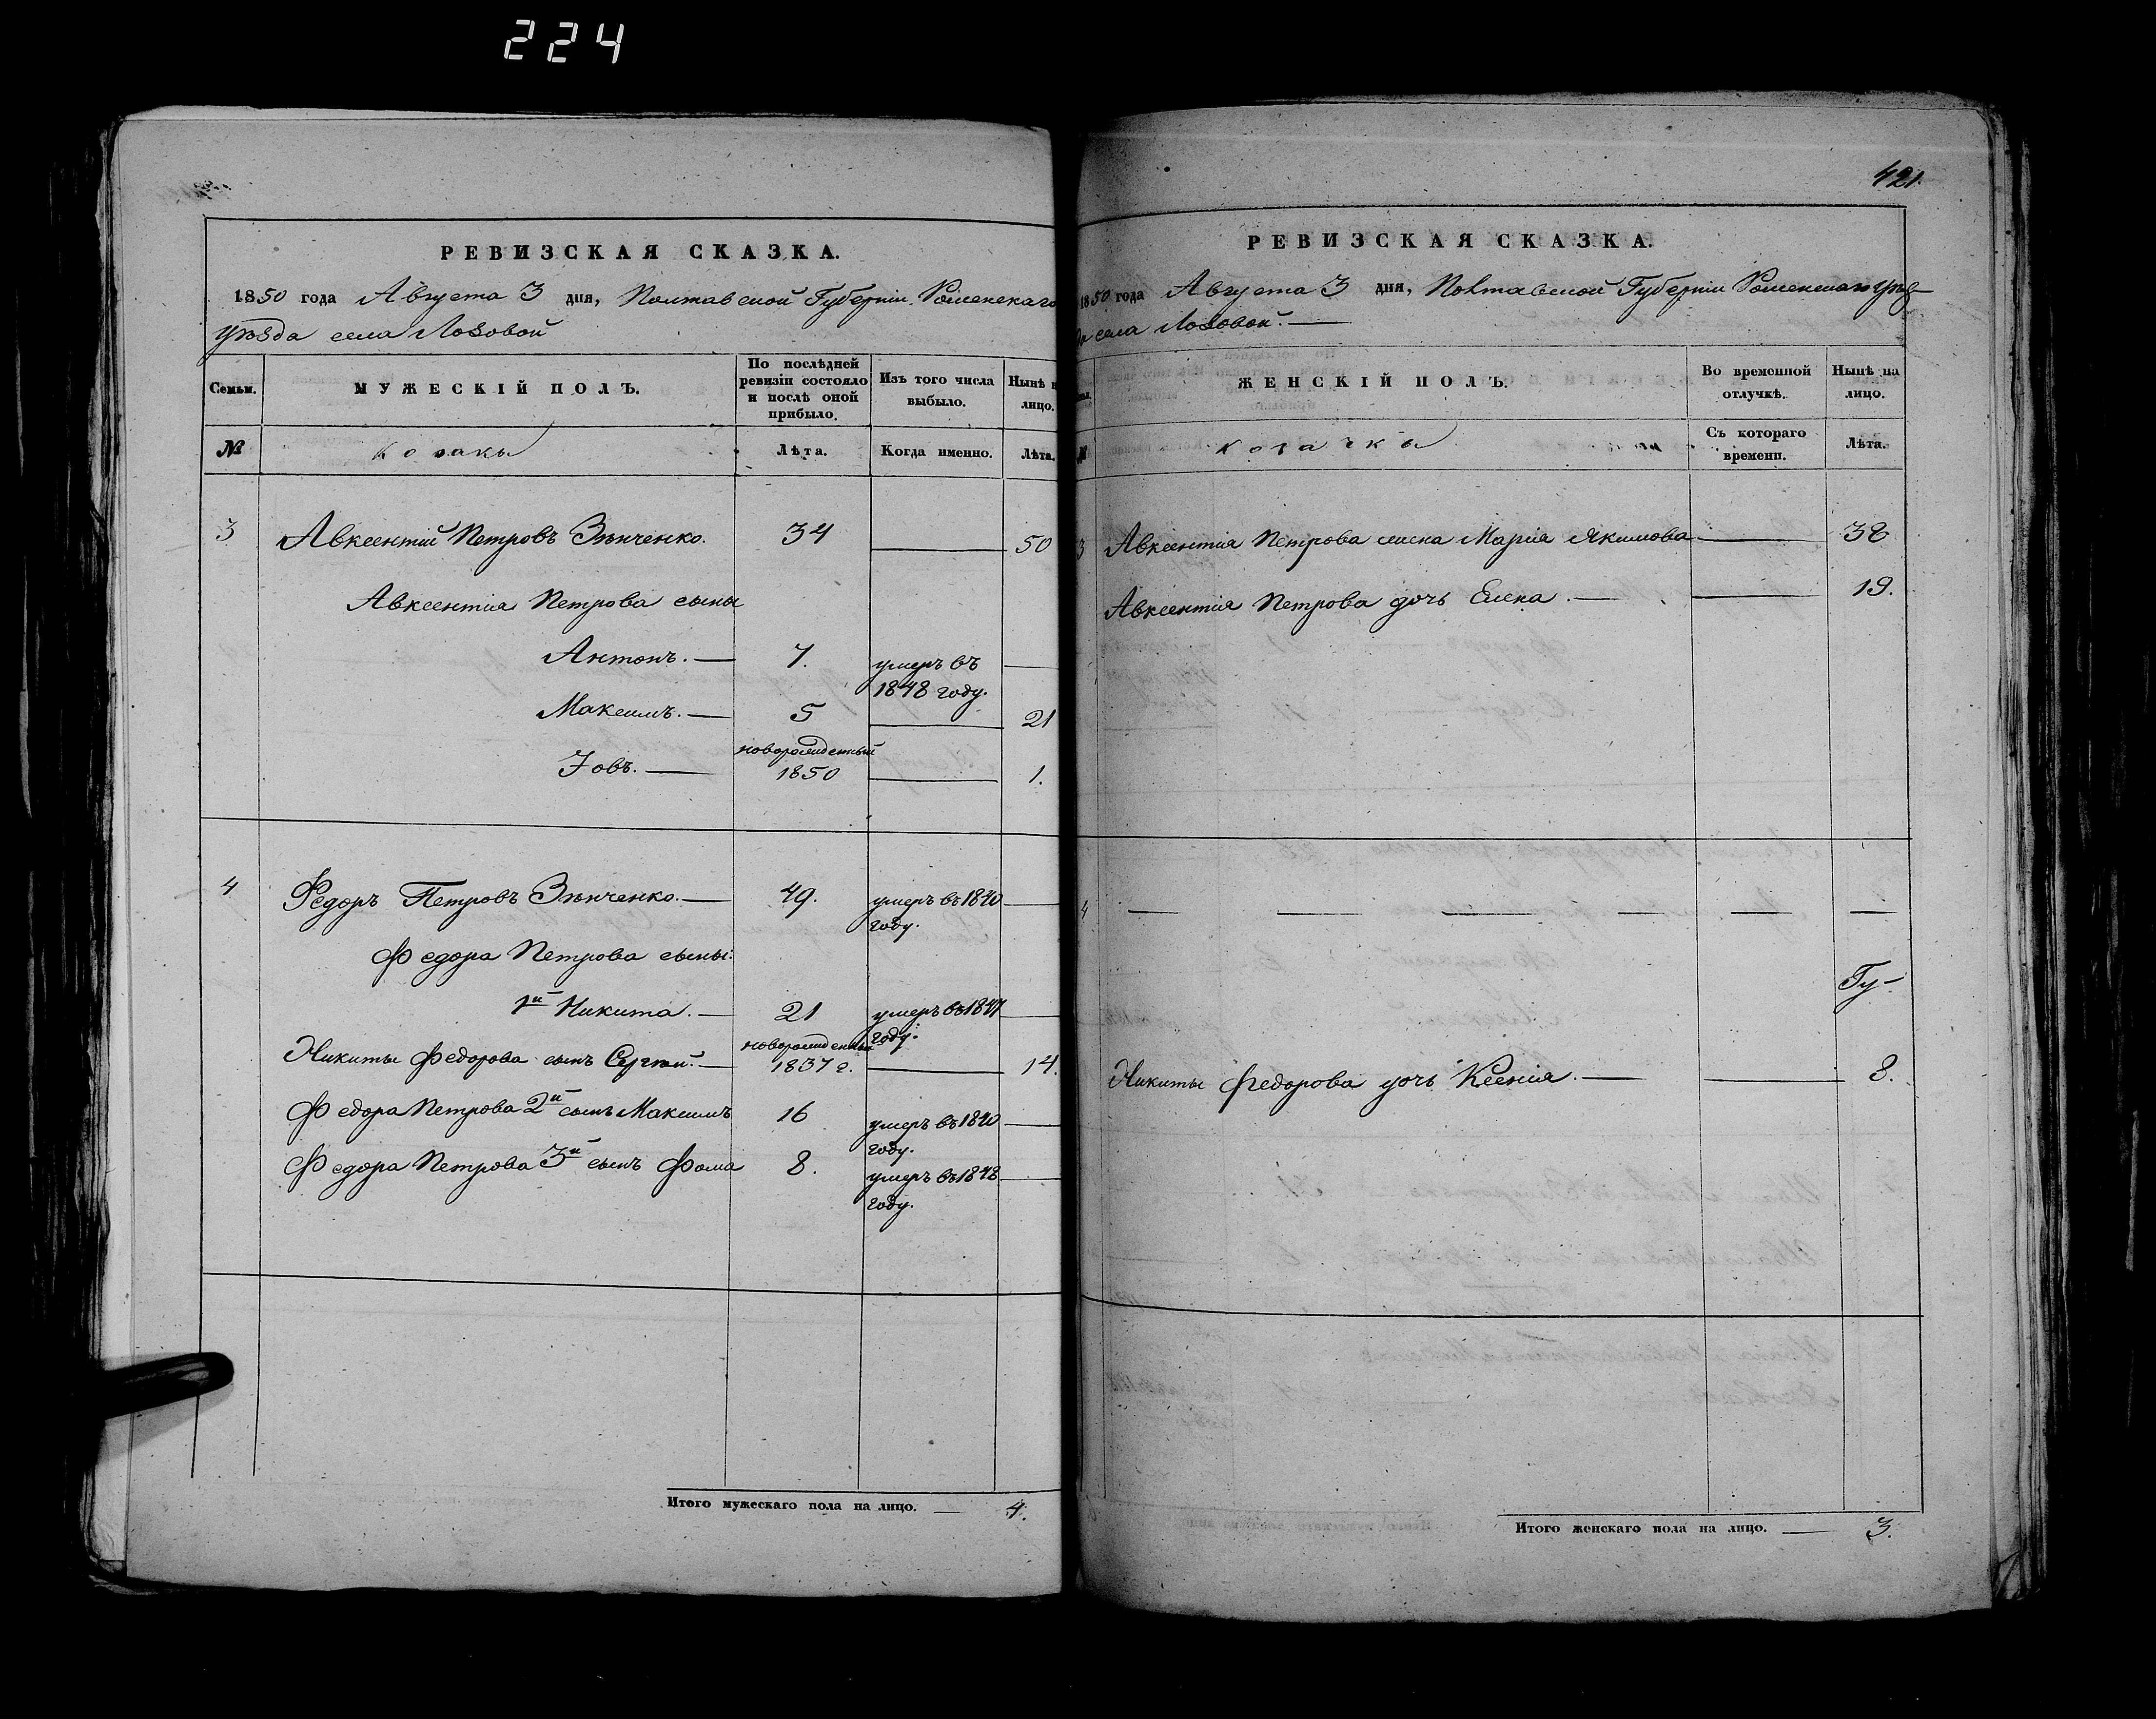 224
421.
РЕВИЗСКАЯ СКАЗКА.
1850 года Августа 3 дня, Полтавской Губерніи Роменскаго
уѣзда села Лозовой
Семьи. МУЖЕСКІЙ ПОЛЪ. По послѣдней ревизіи состояло и послѣ оной прибыло. Изъ того числа выбыло. Нынѣ на лицо.
№ козаки Лѣта. Когда именно. Лѣта.
3 Авксентій Петровъ Зѣнченко. 34 — 50
Авксентія Петрова сыны
Антонъ. — 7. умеръ въ 1848 году. —
Максимъ. — 5 — 21
Іовъ. — новорожденный 1850 — 1.
4 Федоръ Петровъ Зѣнченко. — 49. умеръ въ 1840 году. —
Федора Петрова сыны:
1й Никита. — 21 умеръ въ 1847 году. —
Никиты Федорова сынъ Сергій. — новорожденный 1837 г. — 14.
Федора Петрова 2й сынъ Максимъ 16 умеръ въ 1840 году. —
Федора Петрова 3й сынъ Фома 8. умеръ въ 1848 году. —
Итого мужескаго пола на лицо. — 4.
РЕВИЗСКАЯ СКАЗКА.
1850 года Августа 3 дня, Полтавской Губерніи Роменскаго уѣз-
да села Лозовой. —
ЖЕНСКІЙ ПОЛЪ. Во временной отлучкѣ. Нынѣ на лицо.
№ козачки Съ котораго времени. Лѣта.
3 Авксентія Петрова жена Марія Якимова — 38
Авксентія Петрова дочь Елена. — — 19.
4 — — — — — —
Гу-
Никиты Федорова дочь Ксенія. — — 8.
Итого женскаго пола на лицо. — 3.